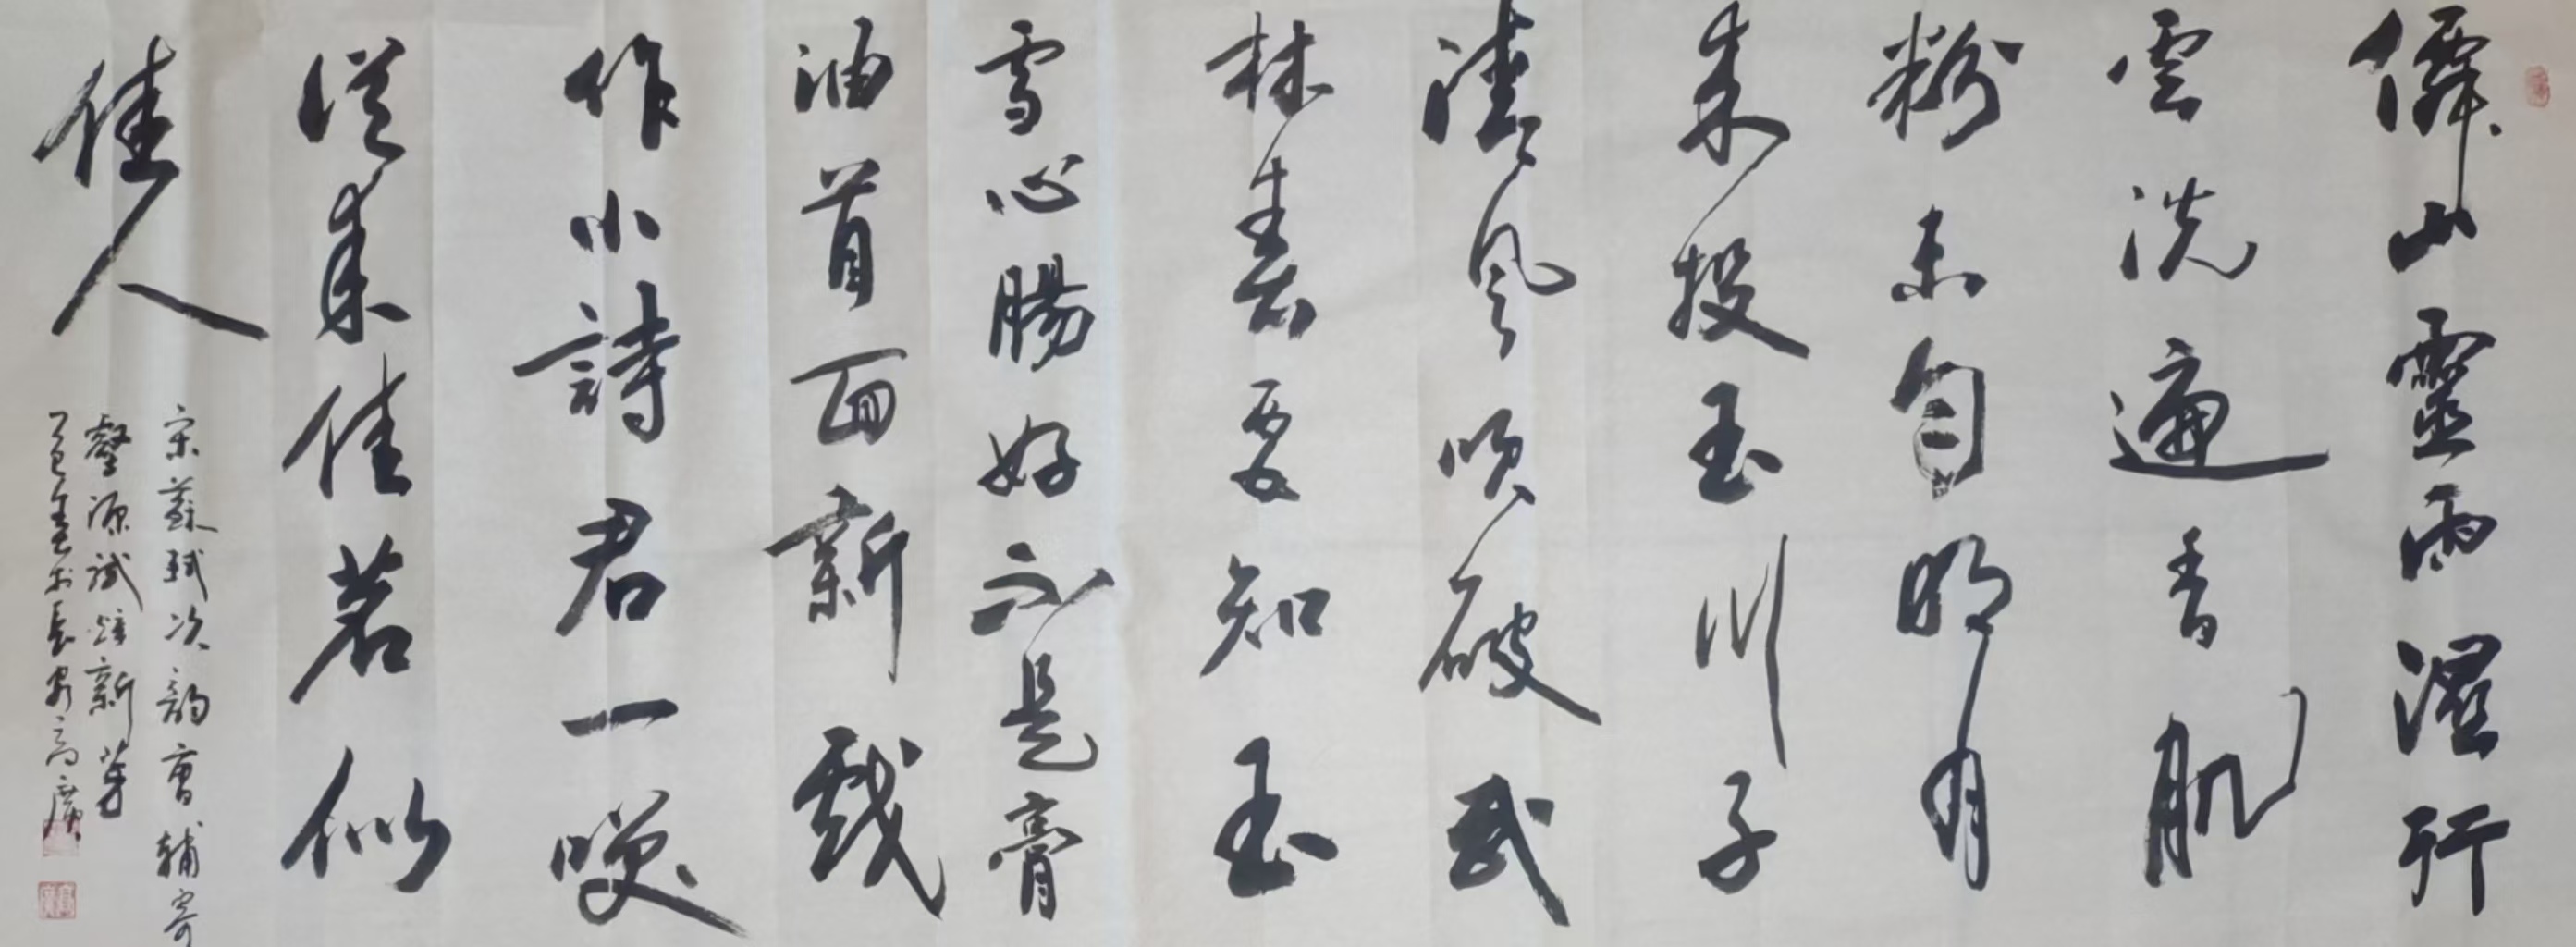 僊山靈雨濕行
雲洗遍香肌
粉未匀明月
来投玉川子
清風吹破武
林春要知玉
雪心腸好不是膏
油首面新戲
作小詩君一咲
從来佳茗似
佳人
宋蘇軾次韵曹輔寄
壑源試焙新芽
乙巳於長安高